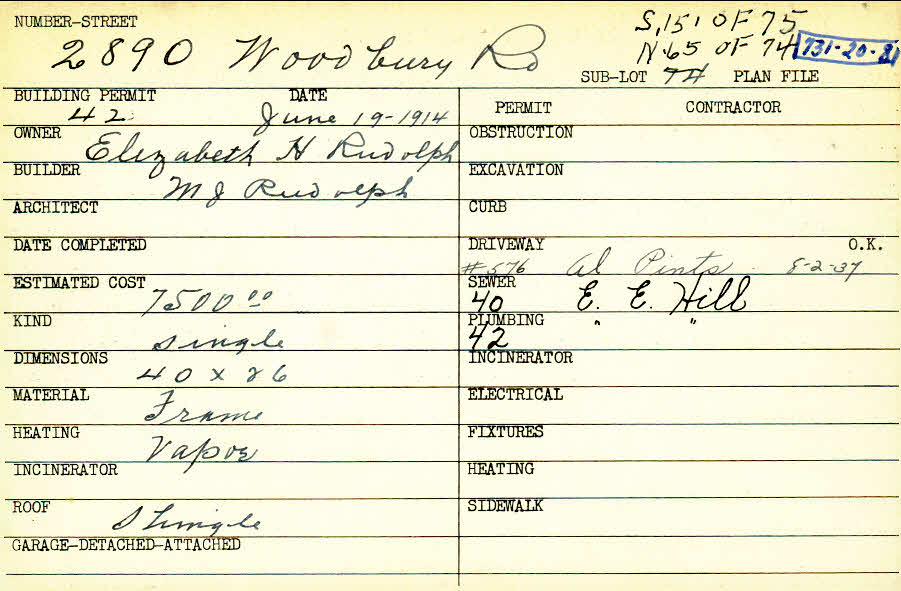 NUMBER-STREET
2890 Woodbury Rd
S, 15' OF 75
N 65 OF 74
731-20-21
SUB-LOT 74 PLAN FILE
BUILDING PERMIT DATE
42 June 19-1914
OWNER
Elizabeth H Rudolph
BUILDER
M J Rudolph
ARCHITECT
DATE COMPLETED
ESTIMATED COST
7500 00
KIND
single
DIMENSIONS
40 x 26
MATERIAL
Frame
HEATING
Vapor
INCINERATOR
ROOF
Shingle
GARAGE-DETACHED-ATTACHED
PERMIT CONTRACTOR
OBSTRUCTION
EXCAVATION
CURB
DRIVEWAY O.K.
#576 Al Pints 8-2-37
SEWER
40 E. E. Hill
PLUMBING
42 " "
INCINERATOR
ELECTRICAL
FIXTURES
HEATING
SIDEWALK